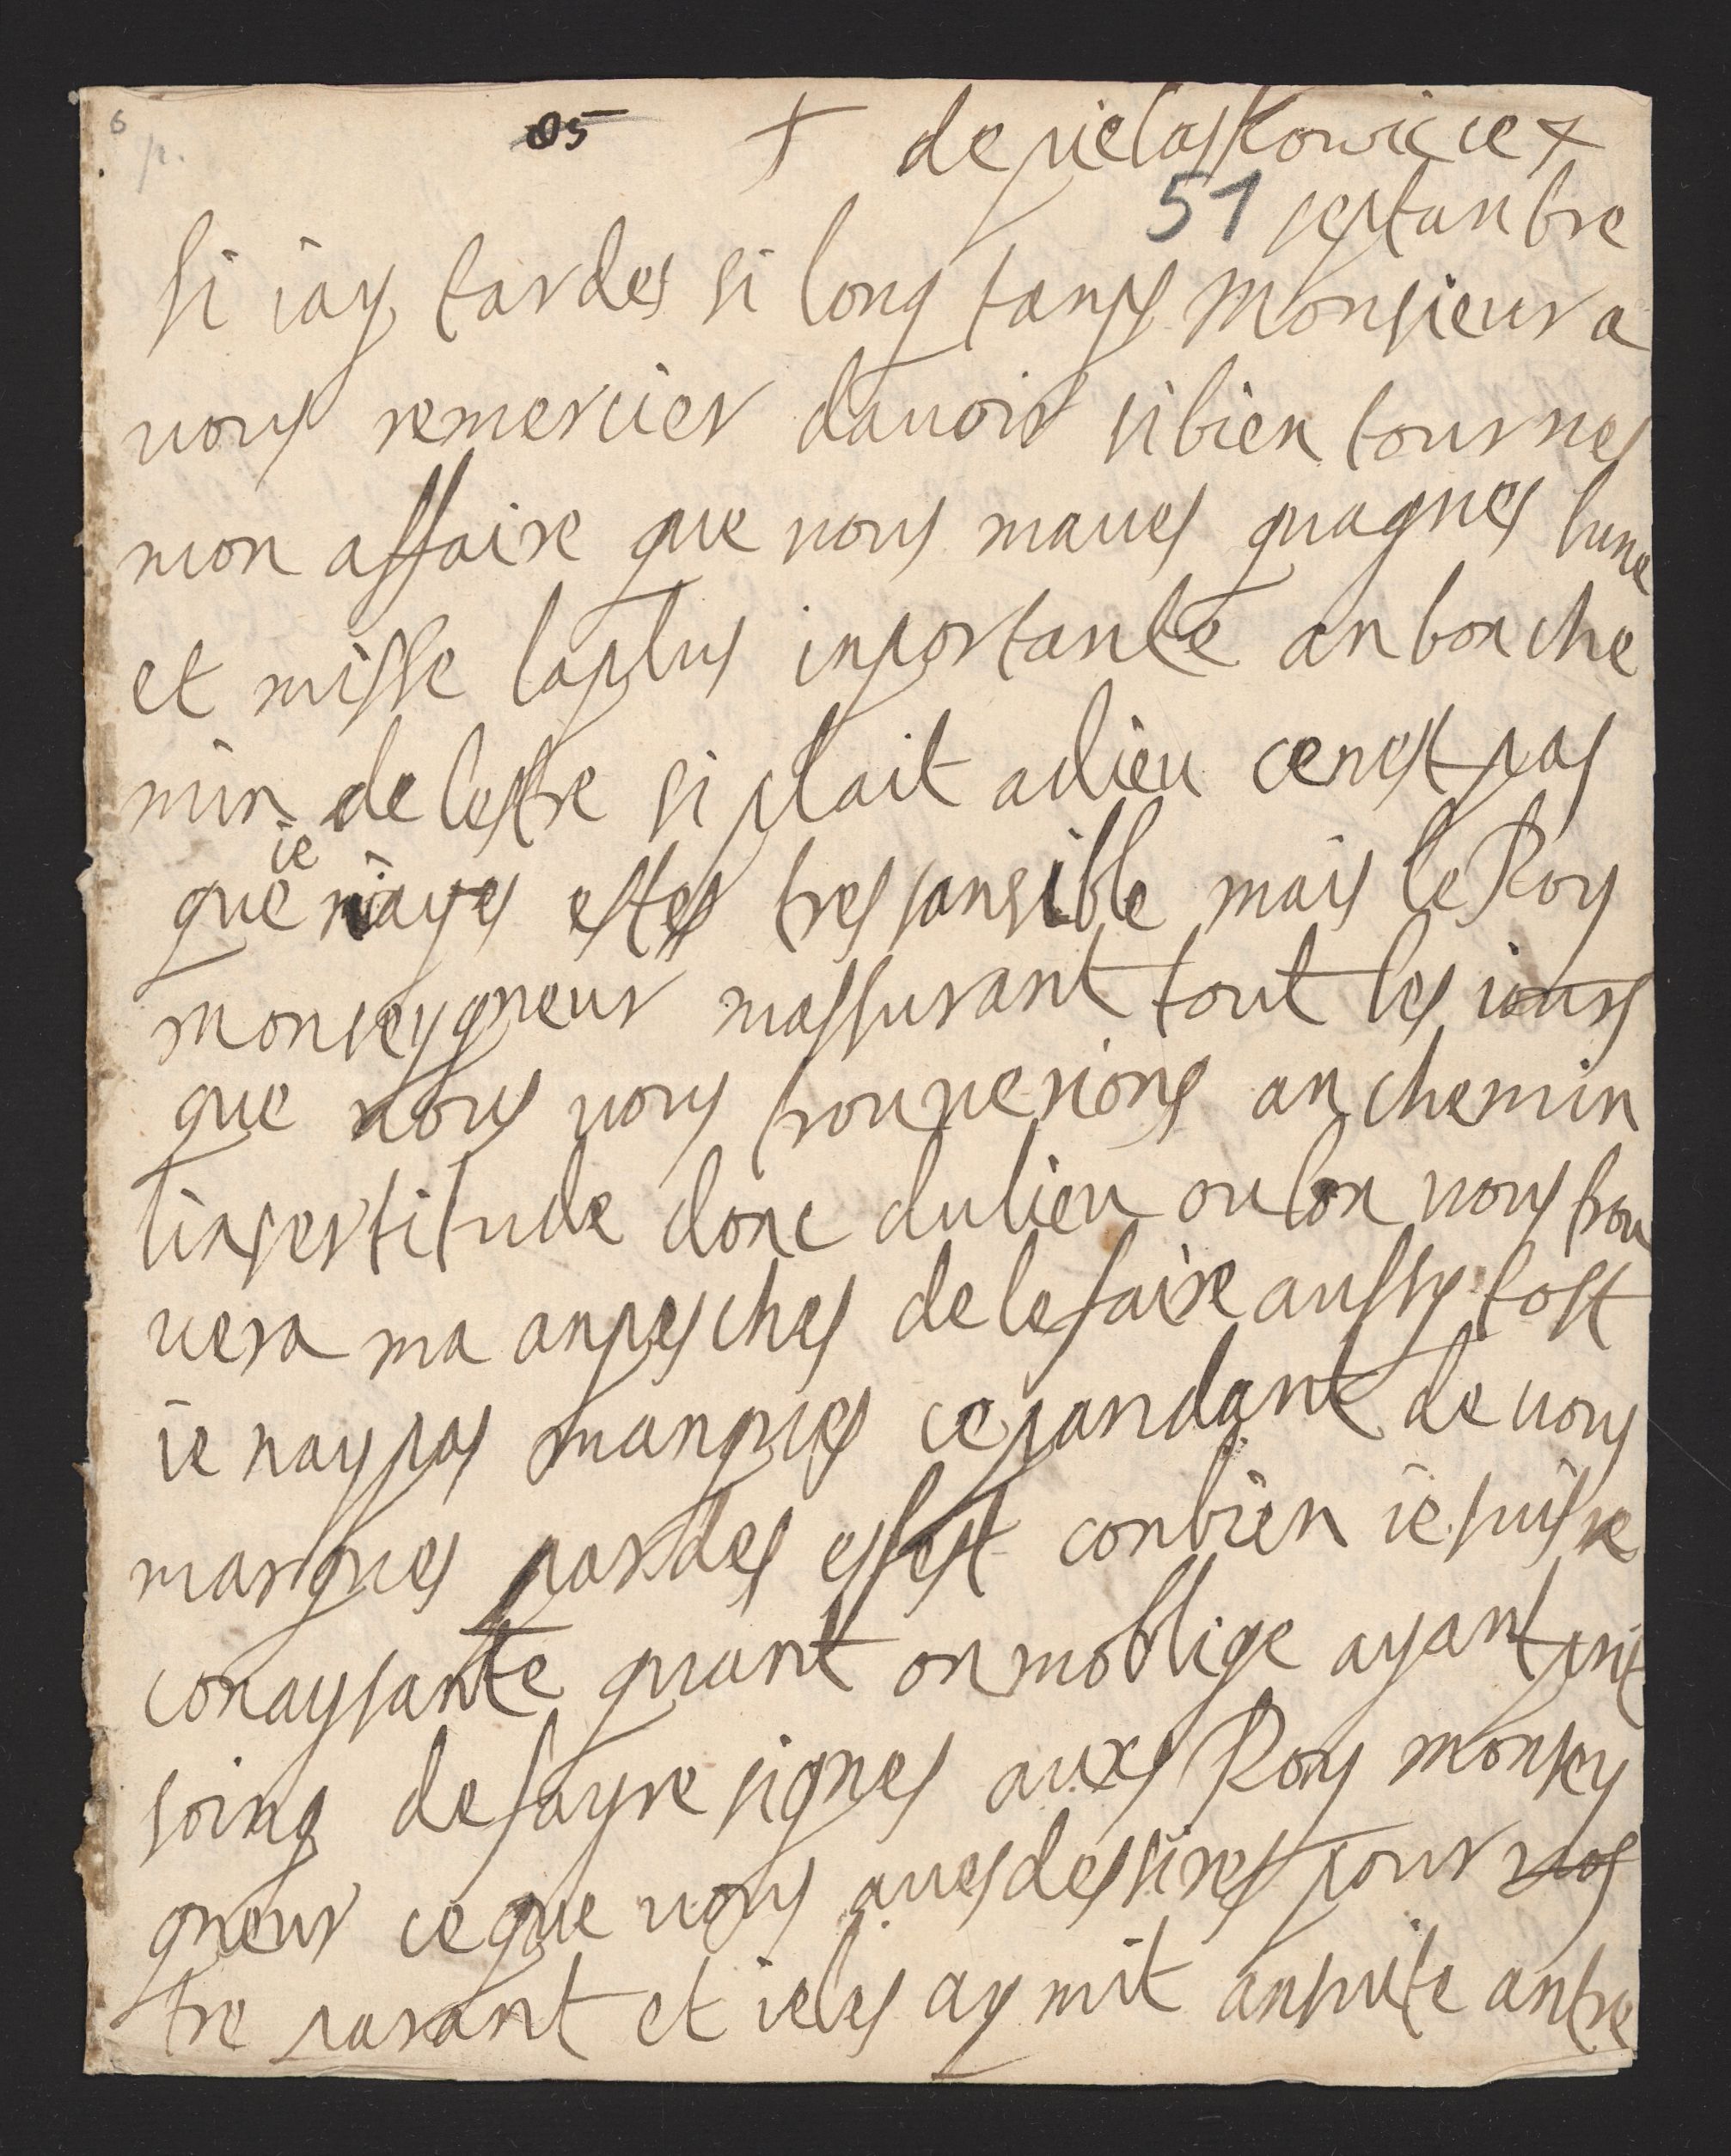 6 p.
85 + de pielaskowice +
51 septanbre
si iay tardes si long tamps Monsieur a
vous remercier dauoir si bien tournes
mon affaire que vous maues guagnes lune
et misse la plus inportante an bon che
min de lestre si plait a dieu ce nest pas
que ie naye estes tres sansible mais le Roy
monseygneur massurant tout les iours
que nous vous trouuerions an chemin
linsertitude donc du lieu ou lon vous trou
uera ma anpesches de le faire aussy tost
ie nay pas manques cepandant de vous
marques par des effest conbien ie suis re
conaysante quant on moblige ayant prit
soing de fayre signes aux Roy monsey
gneur ce que vous aues dessires pour vos
tre parant et ie les ay mit ansuite antre